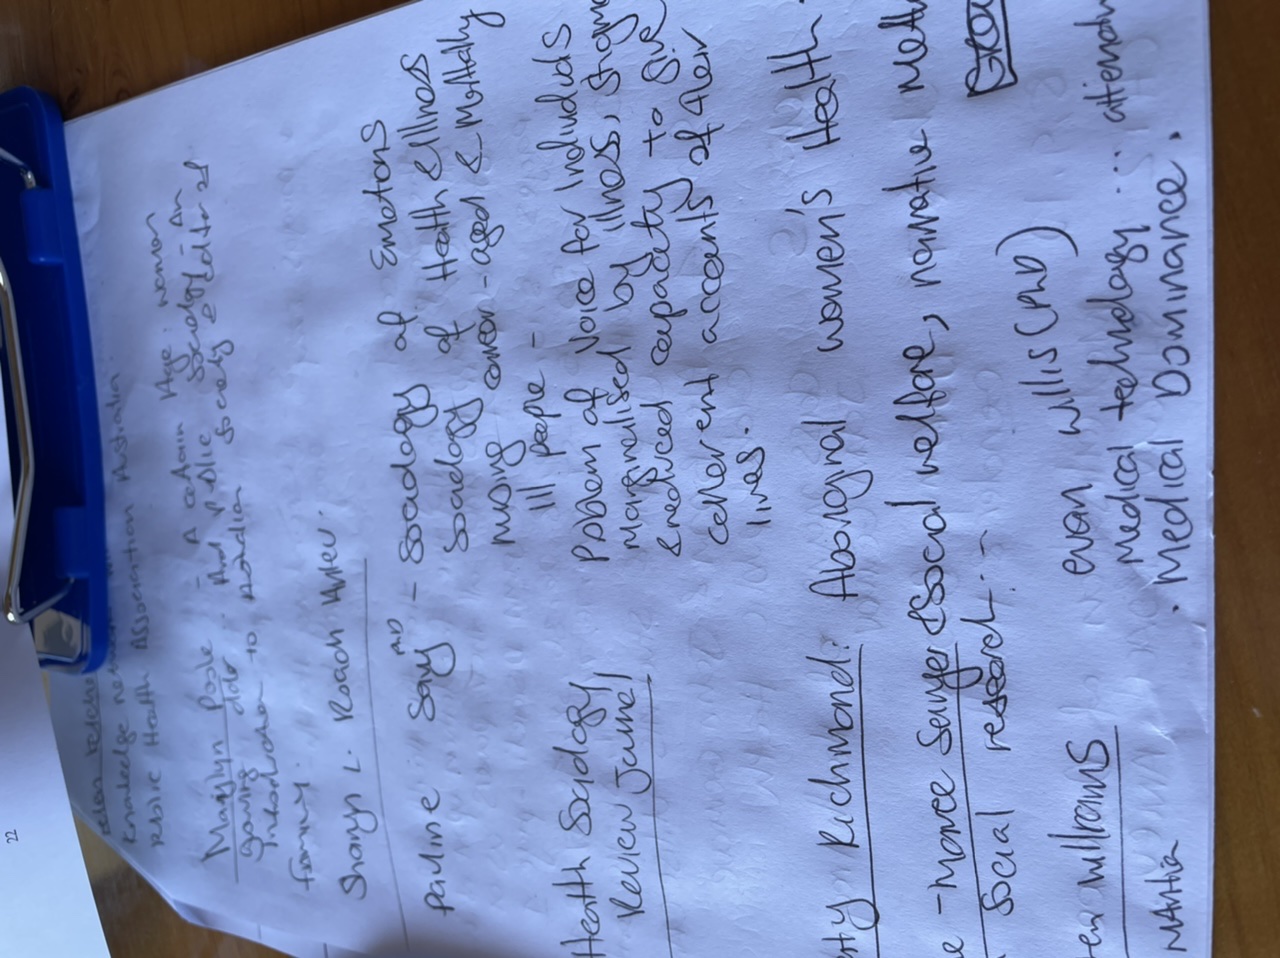 Knowledge
Public Health Association Australia.
Marilyn Poole - A certain Age: women
gowing older. And public Sociology - An
Introduction to Australian Society & Editor of
Family.
Sharyn L. Roach Anleu.
Pauline Savy PhD - Sociology of Emotions
Sociology of Health & Illness
nursing career - aged & Mentally
ill people -
Health Sociology Problem of Voice for Individuals
Review Journal Marginalised by illness, stigma
& reduced capacity to give
coherent accounts of their
lives.
sty Richmond: Aboriginal women's Health
e - Maree Sawyer (Social welfare, narrative Meth
Social research.
evan Willis (PhD)
Medical technology
. Medical Dominance.
ten Williams
Martha
22